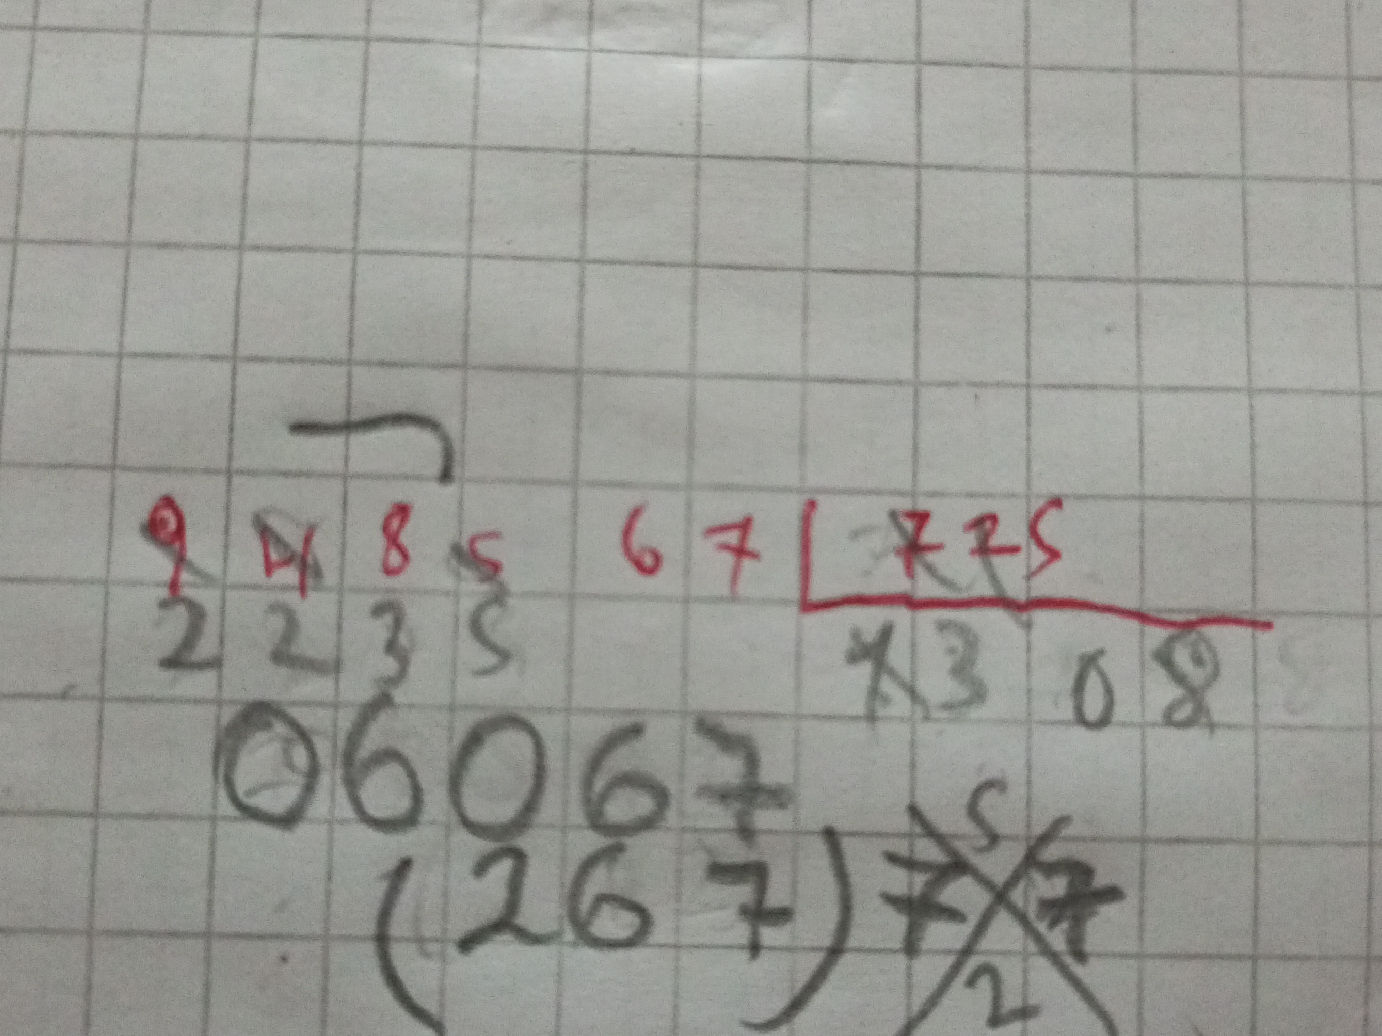 9485 67 775
2235 4308
06067
(267) 5
7 7
2